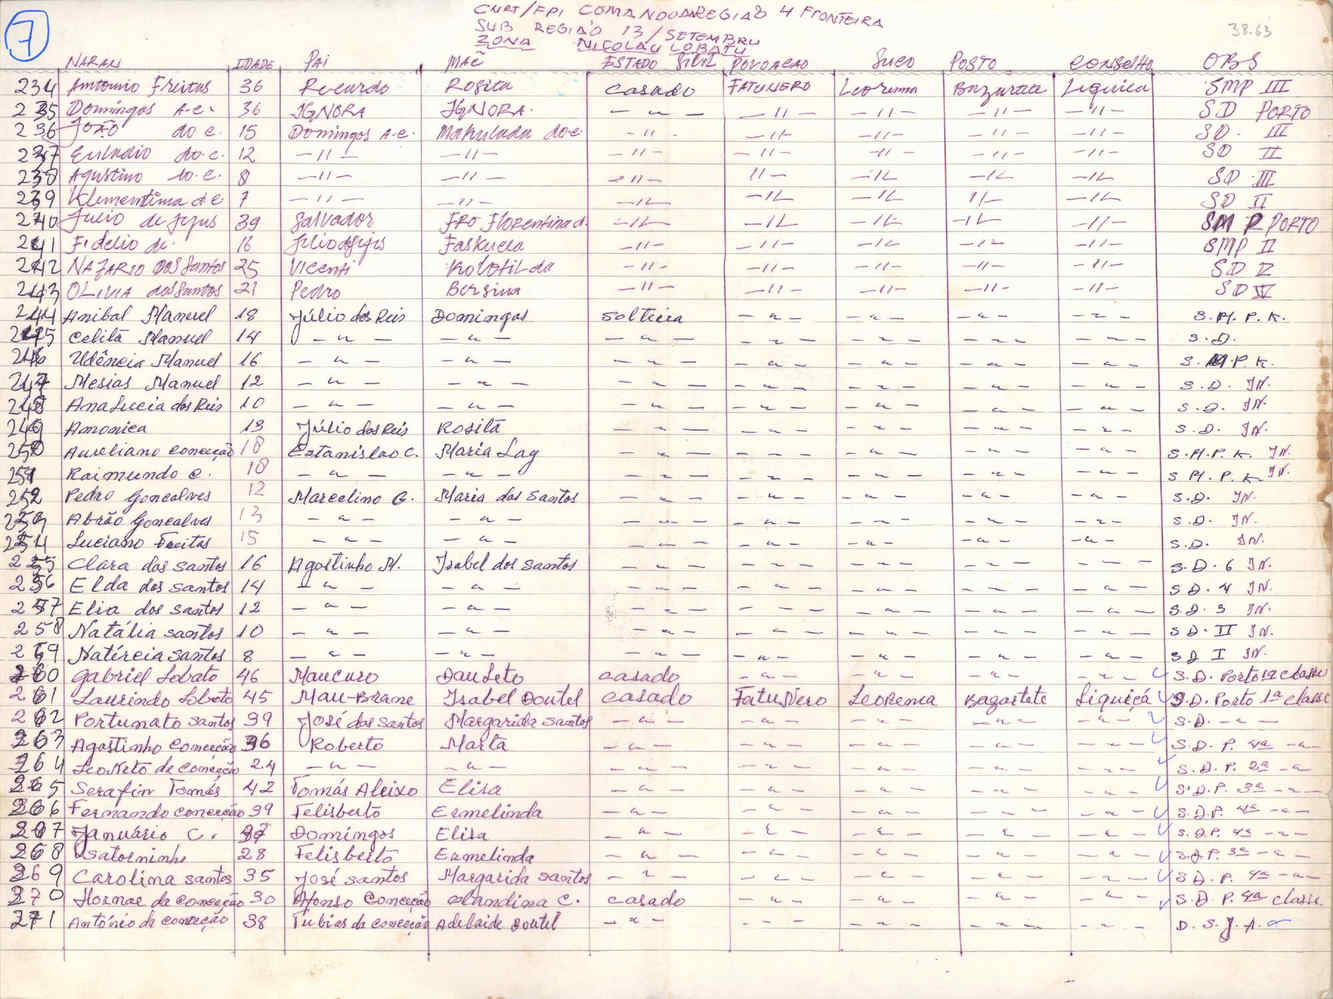 7
CNRT/FPI COMANDO DA REGIÃO 4 FRONTEIRA
38.63
SUB REGIÃO 13/SETEMBRU
ZONA NICOLAU LOBATU
NARAN IDADE PAI MAÊ ESTADO SIVIL POVOACAO SUCO POSTO CONSELHO OBS
234 Antonio Freitas 36 Ricardo Rosita casado FATUNERO Leorema Bazartia Liquica SMP III
235 Domingos A.c. 36 IGNORA IGNORA. — — — —11— —11— —11— —11— SD PORTO
236 João do c. 15 Domingos A.c. do c. —11— —11— —11— —11— —11— SD. III
237 Euladio do.c. 12 —11— —11— —11— —11— —11— —11— —11— SD II
238 Agustino do c. 8 —11— —11— —11— —11— —11— —11— —11— SD III
239 Klementima de c 7 —11— —11— —11— —11— —11— 11— —11— SD II
240 Julio de Jejus 39 Salvador FRO Florentina d. —11— —11— —11— —11— —11— SMP PORTO
241 Fidelio de. 16 Faskuela —11— —11— —11— —11— —11— SMP II
242 NAZARIO DOS Santos 25 Vicenti Kolotilda —11— —11— —11— —11— —11— SD V
243 OLIVIA dos Santos 21 Pedro Bersina —11— —11— —11— —11— —11— SD IV
244 Anibal Manuel 18 Júlio dos Reis Domingas solteira — " — — " — — " — — " — S.M.P.K.
245 Celita Manuel 14 — " — — " — — " — — " — — " — — " — — " — S.D.
246 Manuel 16 — " — — " — — " — — " — — " — — " — — " — S.M.P.K.
247 Mesias Manuel 12 — " — — " — — " — — " — — " — — " — — " — S.D. IN.
248 Ana Lucia dos Reis 10 — " — — " — — " — — " — — " — — " — — " — S.D. IN.
249 Amonica 13 Júlio dos Reis Rosita — " — — " — — " — — " — — " — S.D. IN.
250 Aureliano conceição 18 Estanislao C. Maria Lag — " — — " — — " — — " — — " — S.M.P.K. IN.
251 Raimundo c. 18 — " — — " — — " — — " — — " — — " — — " — S M.P.K. IN.
252 Pedro Goncalves 12 Marcelino G. Maria dos Santos — " — — " — — " — — " — — " — S.D. IN.
253 Abrão Goncalves 13 — " — — " — — " — — " — — " — — " — — " — S.D. IN.
254 Luciano Freitas 15 — " — — " — — " — — " — — " — — " — — " — S.D. IN.
255 Clara dos Santos 16 Agostinho M. Isabel dos santos — " — — " — — " — — " — — " — S.D. 6 IN.
256 Elda dos santos 14 — " — — " — — " — — " — — " — — " — — " — S.D. 4 IN.
257 Elia dos santos 12 — " — — " — — " — — " — — " — — " — — " — S.D. 3 IN.
258 Natália santos 10 — " — — " — — " — — " — — " — — " — — " — S D. II IN.
259 Natércia santos 8 — " — — " — — " — — " — — " — — " — — " — S D I IN.
260 Gabriel Lobato 46 Maucuro Dau Leto casado — " — — " — — " — — " — S.D. Porto 1ª classe
261 Laurindo Lobato 45 Mau-Brane Isabel Doutel casado FatuNero Leorema Bagartete Liquiçá S.D. Porto 1ª classe
262 Fortunato santos 39 José dos Santos Margarida santos — " — — " — — " — — " — — " — S.D. — " —
263 Agostinho conceicão 36 Roberto Marta — " — — " — — " — — " — — " — S.D. P. 4ª — " —
264 LeoNeto de conceição 24 — " — — " — — " — — " — — " — — " — — " — S.D.P. 2ª — " —
265 Serafin Tomás 42 Tomás Aleixo Elisa — " — — " — — " — — " — — " — S.D.P. 3ª — " —
266 Fernando conceição 39 Felisberto Ermelinda — " — — " — — " — — " — — " — S.D.P. 4ª — " —
267 Januário C. Domingos Elisa — " — — " — — " — — " — — " — S.D.P. 4ª — " —
268 Satorninho 28 Felisberto Ermelinda — " — — " — — " — — " — — " — S.D.P. 3ª — " —
269 Carolina santos 35 José santos Margarida santos — " — — " — — " — — " — — " — S D. P. 4ª — " —
270 de conceição 30 Afonso Conceição C. casado — " — — " — — " — — " — S.D. P. 4ª classe
271 António da conceição 38 Tubias da conceição Adelaide Doutel — " — — " — — " — — " — — " — D.S.J.A.